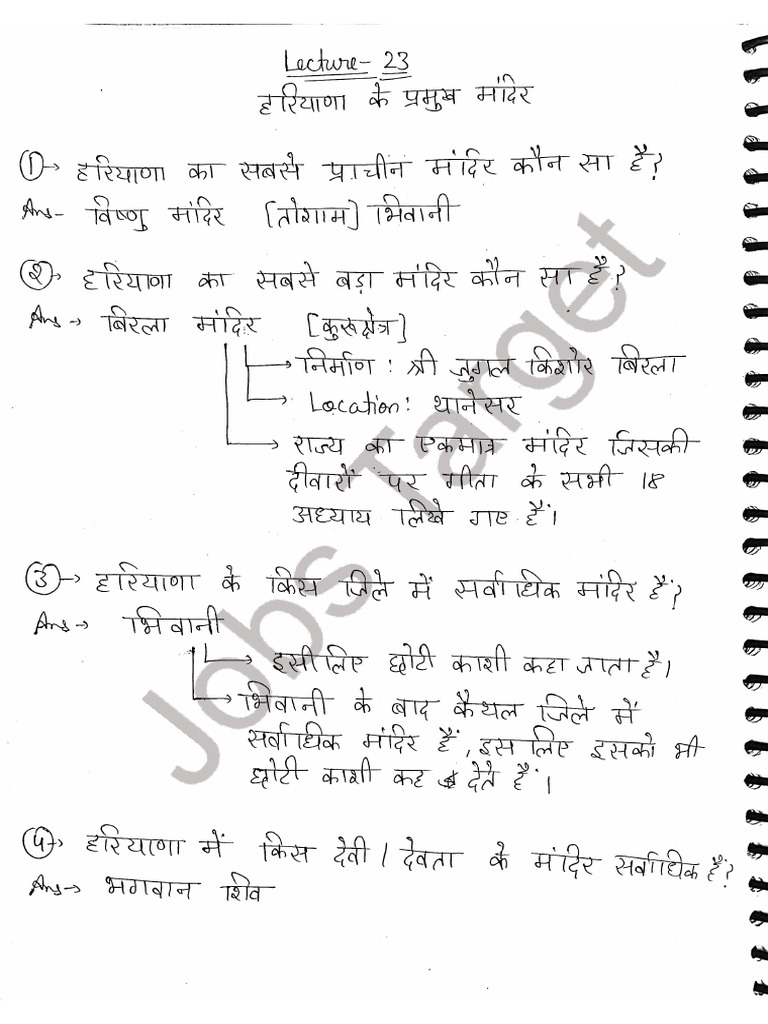 Lecture- 23
हरियाणा के प्रमुख मंदिर
① → हरियाणा का सबसे प्राचीन मंदिर कौन सा है?
Ans - विष्णु मंदिर [तोशाम] भिवानी
② → हरियाणा का सबसे बड़ा मंदिर कौन सा है?
Ans → बिरला मंदिर [कुरुक्षेत्र]
→ निर्माण : श्री जुगल किशोर बिरला
→ Location: थानेसर
→ राज्य का एकमात्र मंदिर जिसकी
दीवारों पर गीता के सभी 18
अध्याय लिखे गए हैं।
③ → हरियाणा के किस जिले में सर्वाधिक मंदिर हैं?
Ans → भिवानी
→ इसीलिए छोटी काशी कहा जाता है।
→ भिवानी के बाद कैथल जिले में
सर्वाधिक मंदिर हैं, इसलिए इसको भी
छोटी काशी कह देते हैं।
④ → हरियाणा में किस देवी / देवता के मंदिर सर्वाधिक हैं?
Ans → भगवान शिव
Jobs Target